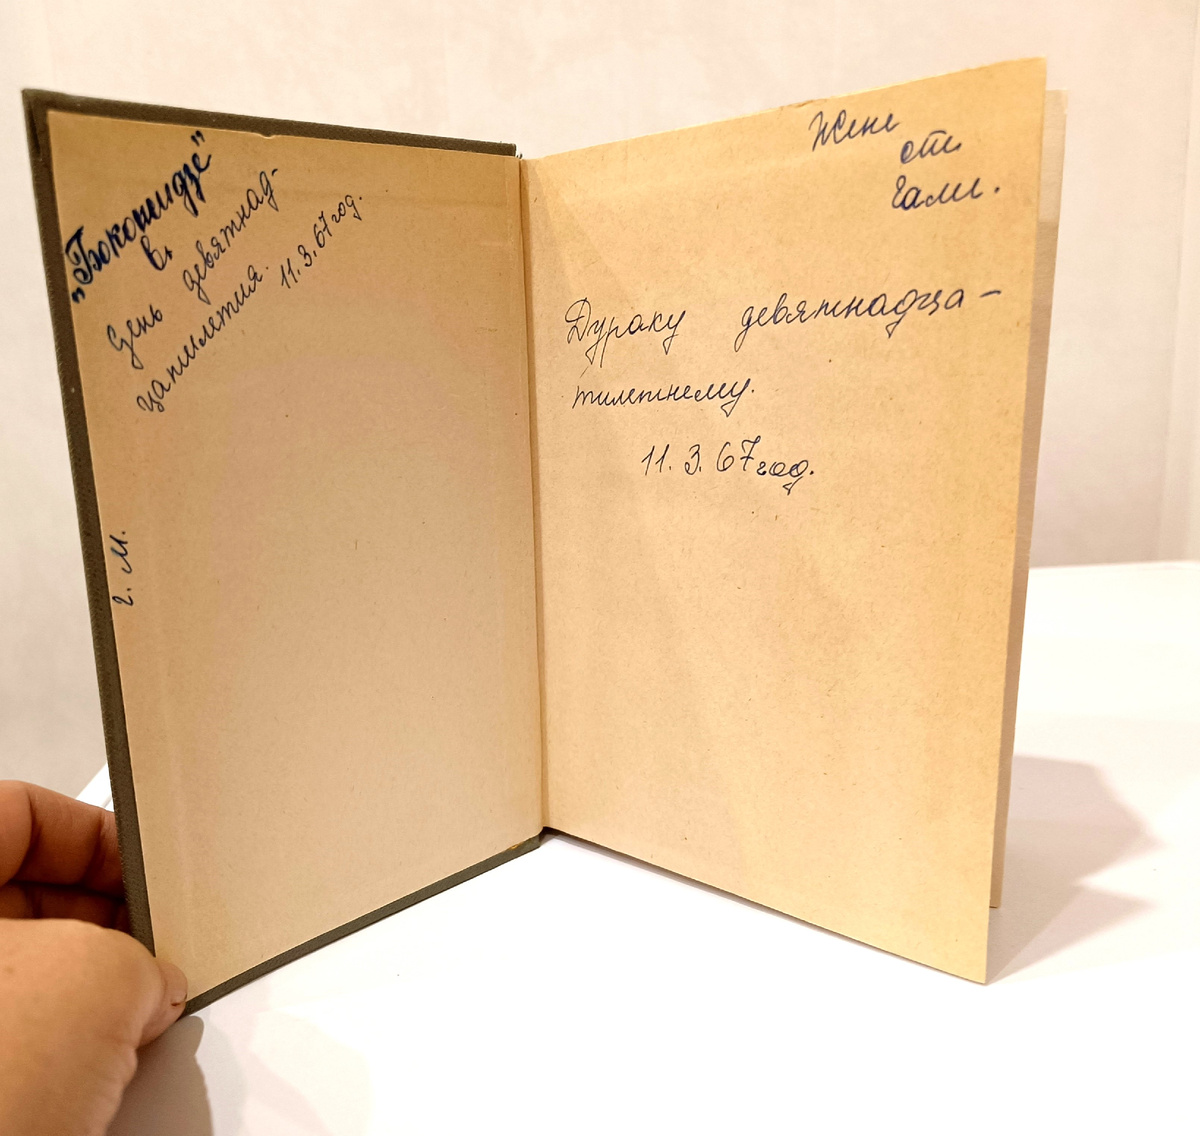 "Бокошидзе"
в
день девятнад-
цатилетия. 11.3.67год.
г. М.
Жене
от
Гали.
Дураку девятнадца-
тилетнему.
11. 3. 67год.